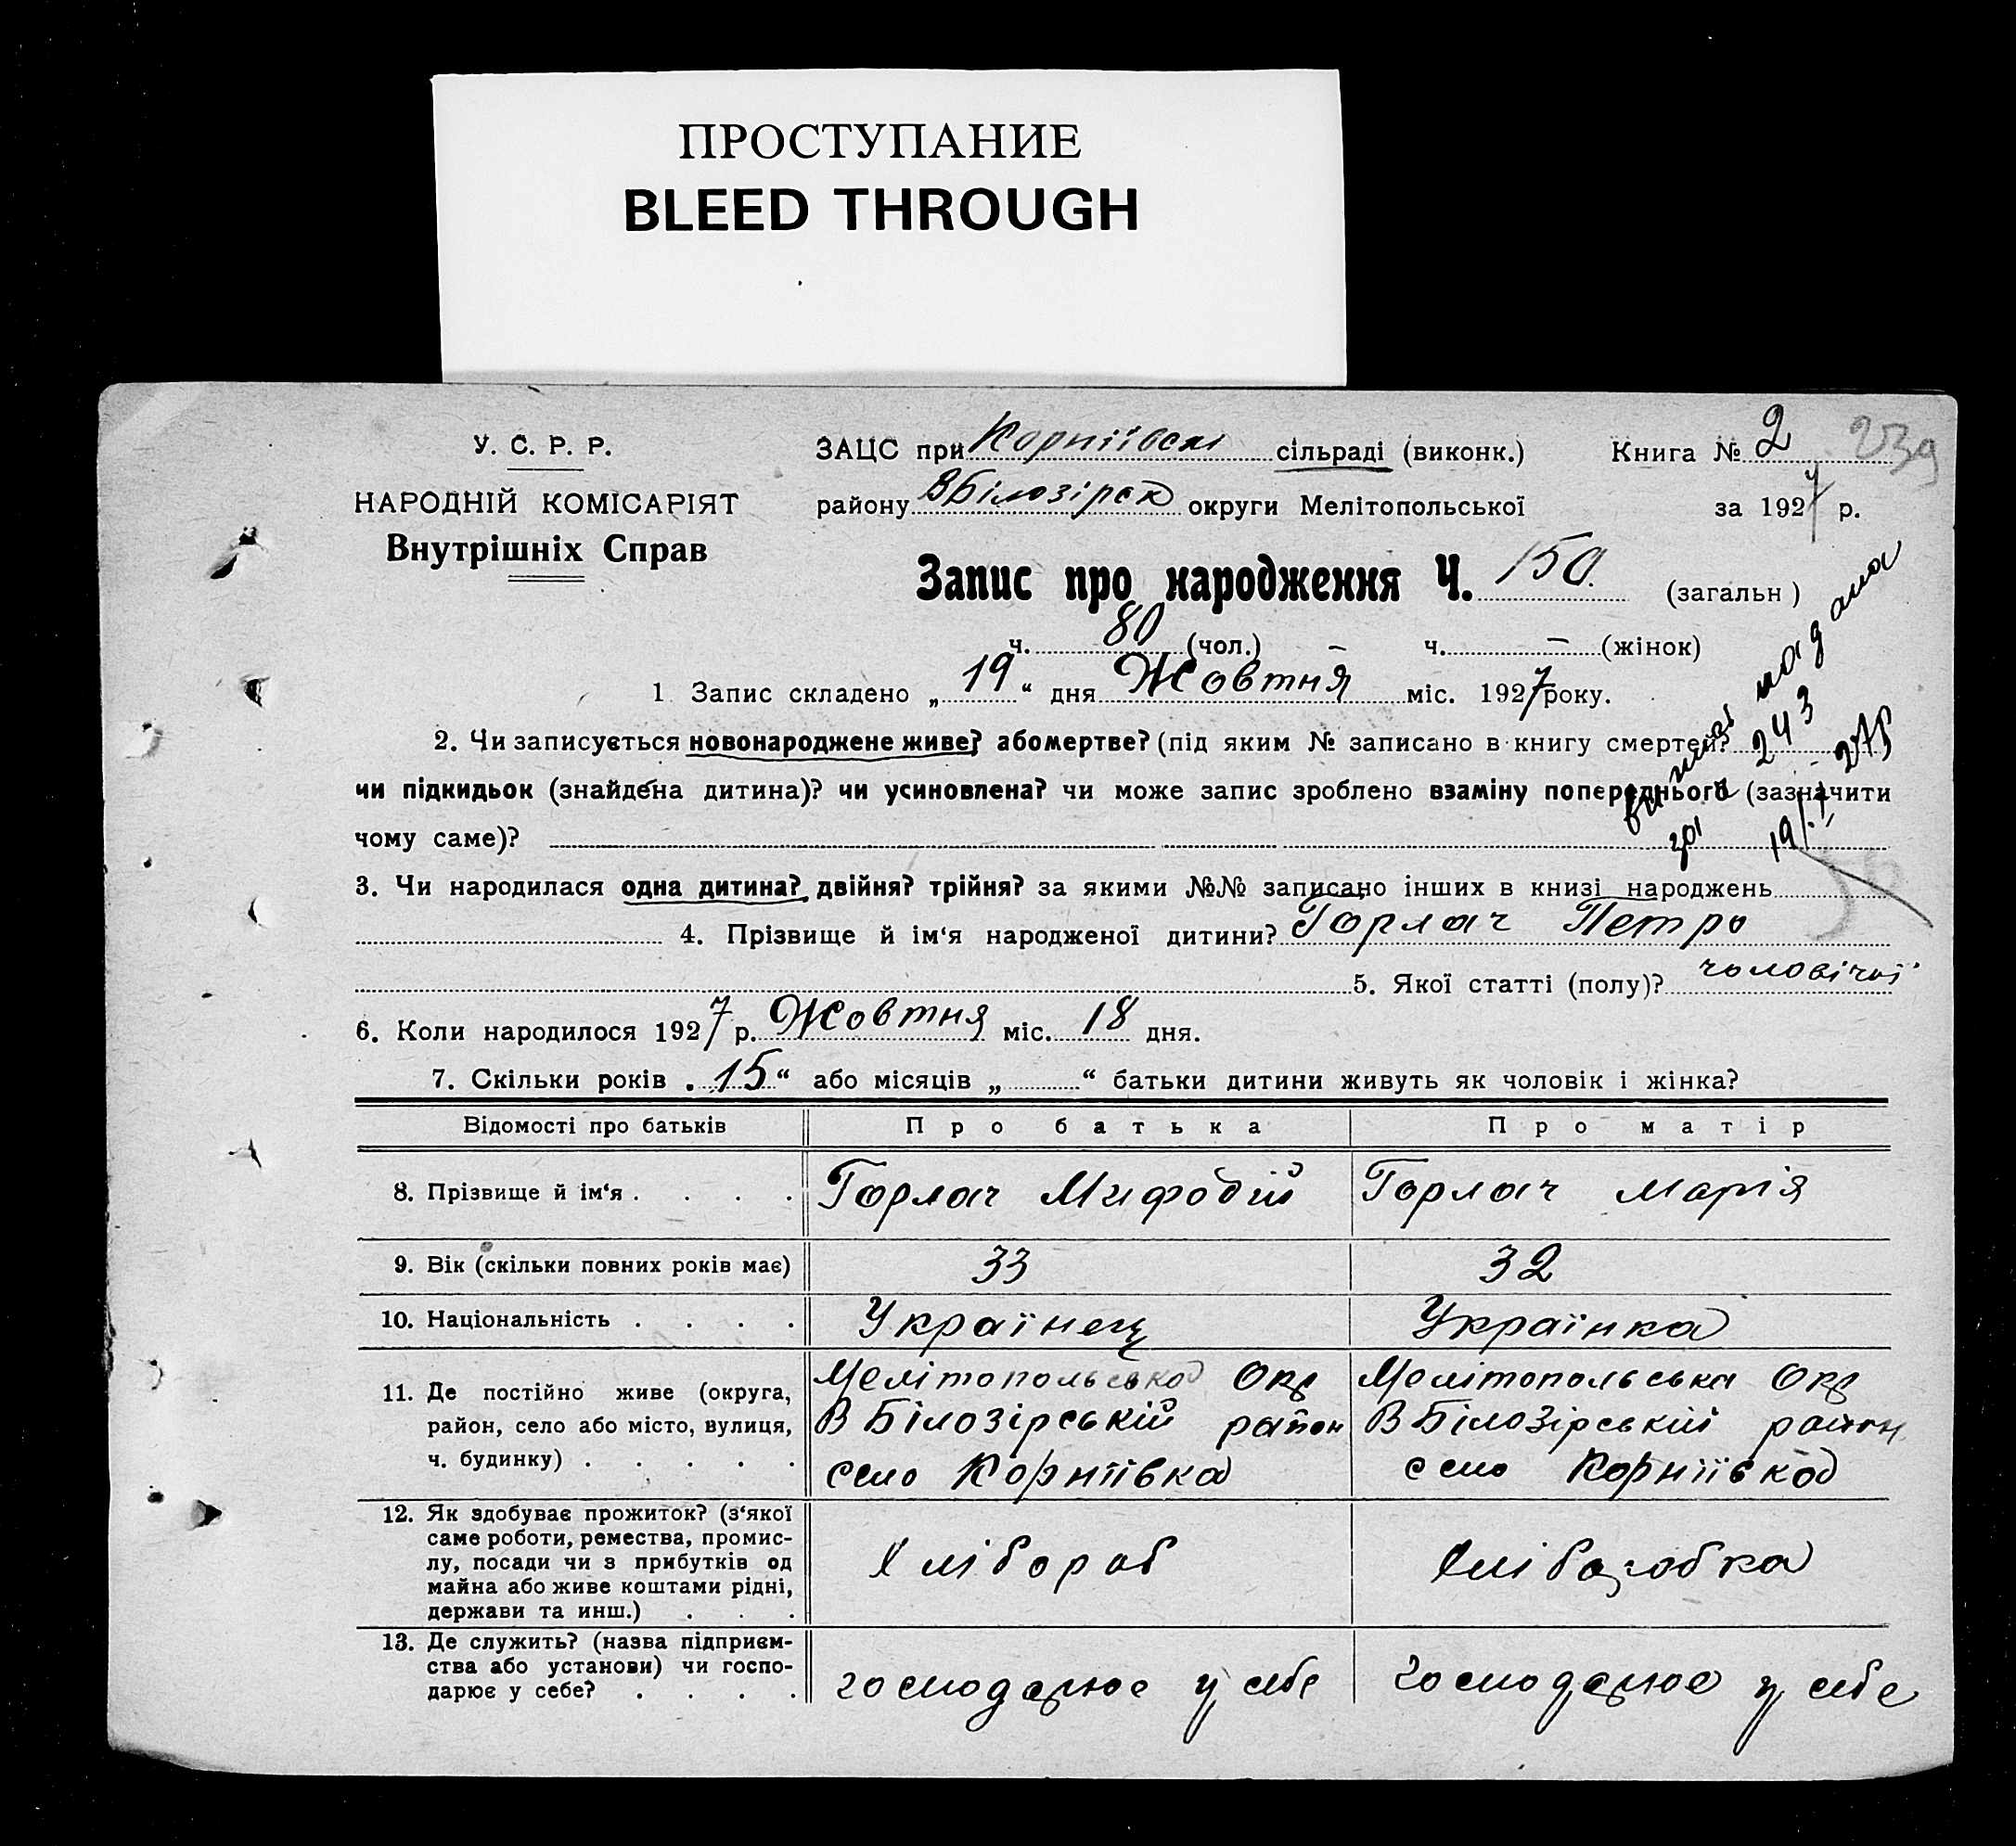 ПРОСТУПАНИЕ
BLEED THROUGH
У. С. Р. Р.
НАРОДНІЙ КОМІСАРІЯТ
Внутрішніх Справ
ЗАЦС при Корніївскі сільраді (виконк.)
Книга № 2
239
району ВБілозірск округи Мелітопольської
за 1927 р.
Запис про народження Ч. 150. (загальн)
ч. 80 (чол.) – ч. – (жінок)
1 Запис складено „ 19 “ дня Жовтня міс. 1927 року.
2. Чи записується новонароджене живе? або мертве? (під яким № записано в книгу смертей?
чи підкидьок (знайдена дитина)? чи усиновлена? чи може запис зроблено взаміну попереднього (зазначити
чому саме)?
надана
за 243
3. Чи народилася одна дитина? двійня? трійня? за якими №№ записано інших в книзі народжень
4. Прізвище й ім‘я народженої дитини? Горлач Петро
5. Якої статті (полу)? чоловічої
6. Коли народилося 1927 р. Жовтня міс. 18 дня.
7. Скільки років „ 15 “ або місяців „ “ батьки дитини живуть як чоловік і жінка?
Відомості про батьків Про батька Про матір
8. Прізвище й ім‘я . . . . Горлач Мифодій Горлач Марія
9. Вік (скільки повних років має) 33 32
10. Національність . . . . Українец Українка
11. Де постійно живе (округа, Мелітопольська Окр Мелітопольська Окр
район, село або місто, вулиця, В Білозірській район В Білозірській район
ч. будинку) . . . . . село Корніївка село Корніївка
12. Як здобуває прожиток? (з‘якої
саме роботи, ремества, промис-
лу, посади чи з прибутків од Хлібороб Хліборобка
майна або живе коштами рідні,
держави та инш.) . . .
13. Де служить? (назва підприєм-
ства або установи) чи госпо-
дарює у себе? . . . . господарює у себе господарює у себе